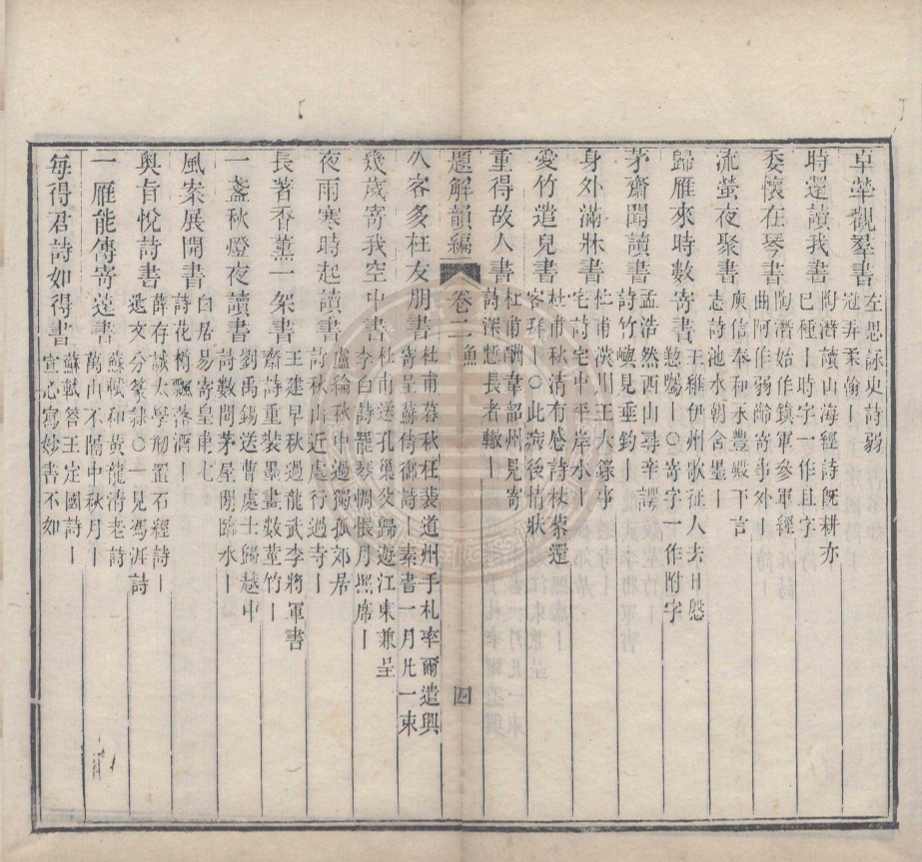 卓犖觀羣書 左思詠史詩弱冠弄柔翰丨
時還讀我書 陶潛讀山海經詩既耕亦已種丨時字一作且字
委懷在琴書 陶潛始作鎮軍參軍經曲阿作弱齡寄事外丨
流螢夜聚書 庾信奉和永豐殿下言志詩池水朝含墨丨
歸雁來時數寄書 王維伊州歌征人去日慇懃囑丨○寄字一作附字
茅齋聞讀書 孟浩然西山尋辛諤詩竹嶼見垂釣丨
身外滿牀書 杜甫漢川王大錄事宅詩宅中平岸水丨
愛竹遣兒書 杜甫秋清有感詩杖藜還客拜丨○此病後情狀
重得故人書 杜甫酬韋韶州見寄詩深慙長者轍丨
題解韻編 卷二 魚 四
久客多枉友朋書 杜甫暮秋枉裴道州手札率爾遣興寄呈蘇侍御詩丨素書一月凡一束
幾歲寄我空中書 杜甫送孔巢父歸遊江東兼呈李白詩罷琴惆悵月照席丨
夜雨寒時起讀書 盧綸秋中過獨孤郊居詩秋山近處行過寺丨
長著香薰一架書 王建早秋過龍武李將軍書齋詩重裝墨畫數莖竹丨
一盞秋燈夜讀書 劉禹錫送曹處士歸越中詩數間茅屋閒臨水丨
風案展開書 白居易寄皇甫七詩花樽飄落酒丨
奥旨悅詩書 薛存誠太學剏置石經詩丨遞文分篆隸○一見馮涯詩
一雁能傳寄遠書 蘇軾和黃龍清老詩萬山不隔中秋月丨
每得君詩如得書 蘇軾答王定國詩丨宣心寫妙書不如